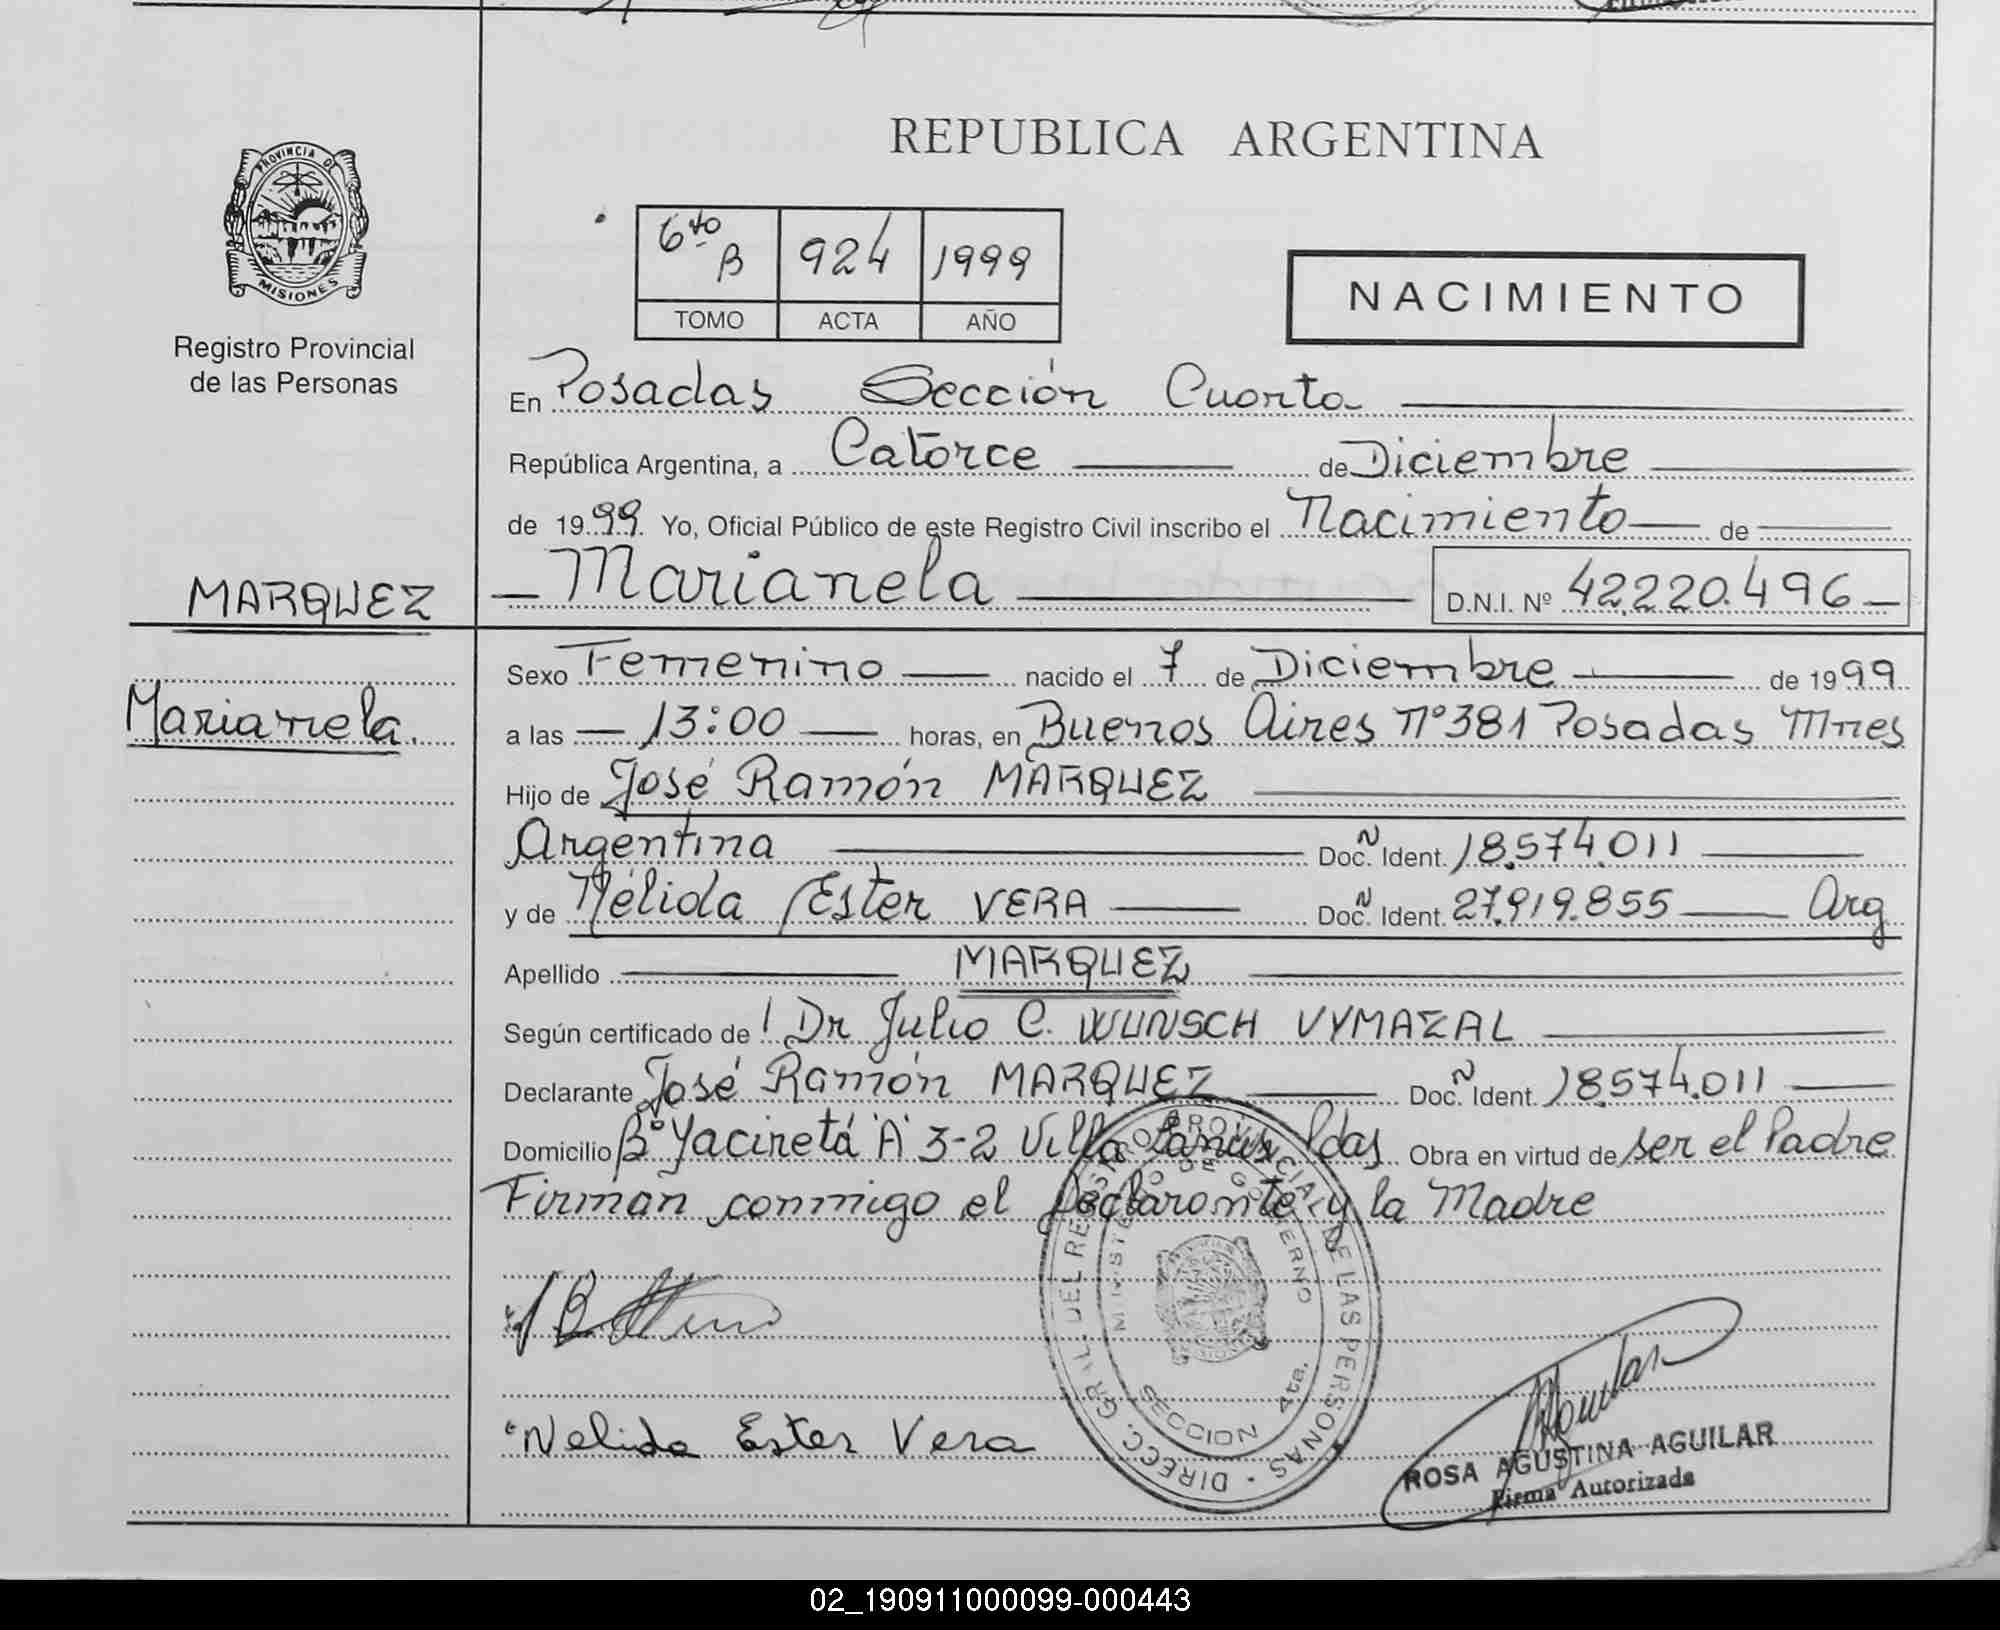 REPUBLICA ARGENTINA
PROVINCIA DE
MISIONES
Registro Provincial
de las Personas
6to B 924 1999
TOMO ACTA AÑO
NACIMIENTO
En Posadas Sección Cuarta
República Argentina, a Catorce de Diciembre
de 1999 Yo, Oficial Público de este Registro Civil inscribo el Nacimiento de
MARQUEZ Marianela D.N.I. Nº 42.220.496
Sexo Femenino nacido el 7 de Diciembre de 1999
Marianela. a las 13:00 horas, en Buenos Aires Nº 381 Posadas Mnes
Hijo de José Ramón MARQUEZ
Argentina Doc. N Ident. 18.574.011
y de Nélida Ester VERA Doc. N Ident. 27.919.855 Arg
Apellido MARQUEZ
Según certificado de Dr Julio C. WUNSCH VYMAZAL
Declarante José Ramón MARQUEZ Doc. N Ident. 18.574.011
Domicilio Bº Yacireta "A" 3-2 Villa Lanus Pdas Obra en virtud de ser el Padre
Firman conmigo el Declarante y la Madre
DIREC. GRAL. DEL REGISTRO PROVINCIAL DE LAS PERSONAS
MINISTERIO DE GOBIERNO
SECCION 4ta.
Nelida Ester Vera
ROSA AGUSTINA AGUILAR
Firma Autorizada
02_190911000099-000443